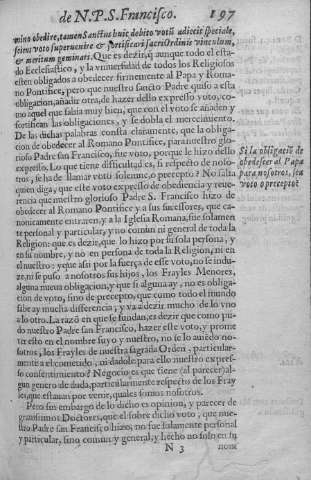 de N.P.S. Francisco. 197
mino obedire, tamen Sanctus huic debito votũ adiecit speciale,
sciens voto superuenire & fortificari sacri Ordinis vinculum,
& meritum geminari. Que es dezir, q̃ aunque todo el esta-
do Ecclesiastico, y la vniuersidad de todos los Religiosos
esten obligados a obedecer firmemente al Papa y Roma-
no Pontifice, pero que nuestro sancto Padre quiso a esta
obligacion, añadir otra, de hazer dello expresso voto, co-
mo aquel que sabia muy bien, que con el voto se añaden y
fortifican las obligaciones, y se dobla el merecimiento.
De las dichas palabras consta claramente, que la obliga-
cion de obedecer al Romano Pontifice, para nuestro glo-
rioso Padre San Francisco, fue voto, porque le hizo dello
expresso. Lo que tiene dificultad es, si respecto de noso-
tros, se ha de llamar votū solenne, o precepto? No falta
quien diga, que este voto expresso de obediencia y reue-
rencia que nuestro glorioso Padre S. Francisco hizo de
obedecer al Romano Pontifice y a sus successores, que ca-
nonicamente entraren, y a la Iglesia Romana, fue solamen
te personal y particular, y no comun ni general de toda la
Religion: que es dezir, que lo hizo por su sola persona, y
en su nombre, y no en persona de toda la Religion, ni en
el nuestro: y que assi por la fuerça de este voto, no se indu-
ze, ni se puso a nosotros sus hijos, los Frayles Menores,
alguna nueua obligacion, y que si alguna ay, no es obliga-
cion de voto, sino de precepto, que como todo el mundo
sabe ay mucha differencia, y va a dezir mucho de lo vno
a lo otro. La razõ en que se fundan, es dezir que como pu-
do nuestro Padre san Francisco, hazer este voto, y prome
ter esto en el nombre suyo y nuestro, no se lo auiendo no-
sotros, los Frayles de nuestra sagrada Ordẽ, particular-
mente a el cometido, ni dadole para ello nuestro expres-
so consentimiento? Negocio es que tiene (al parecer) al-
gun genero de duda, particularmente respecto de los Fray
les, que estauan por venir, quales somos nosotros.
Pero sin embargo de lo dicho es opinion, y parecer de
grauissimos Doctores, que el sobre dicho voto, que nues-
tro Padre san Francisco hizo, no fue solamente personal
y particular, sino comun y general, y hecho no solo en su
N 3 nom
Si la obligaciõ de
obedecer al Papa
para nosotros, sea
voto o precepto?